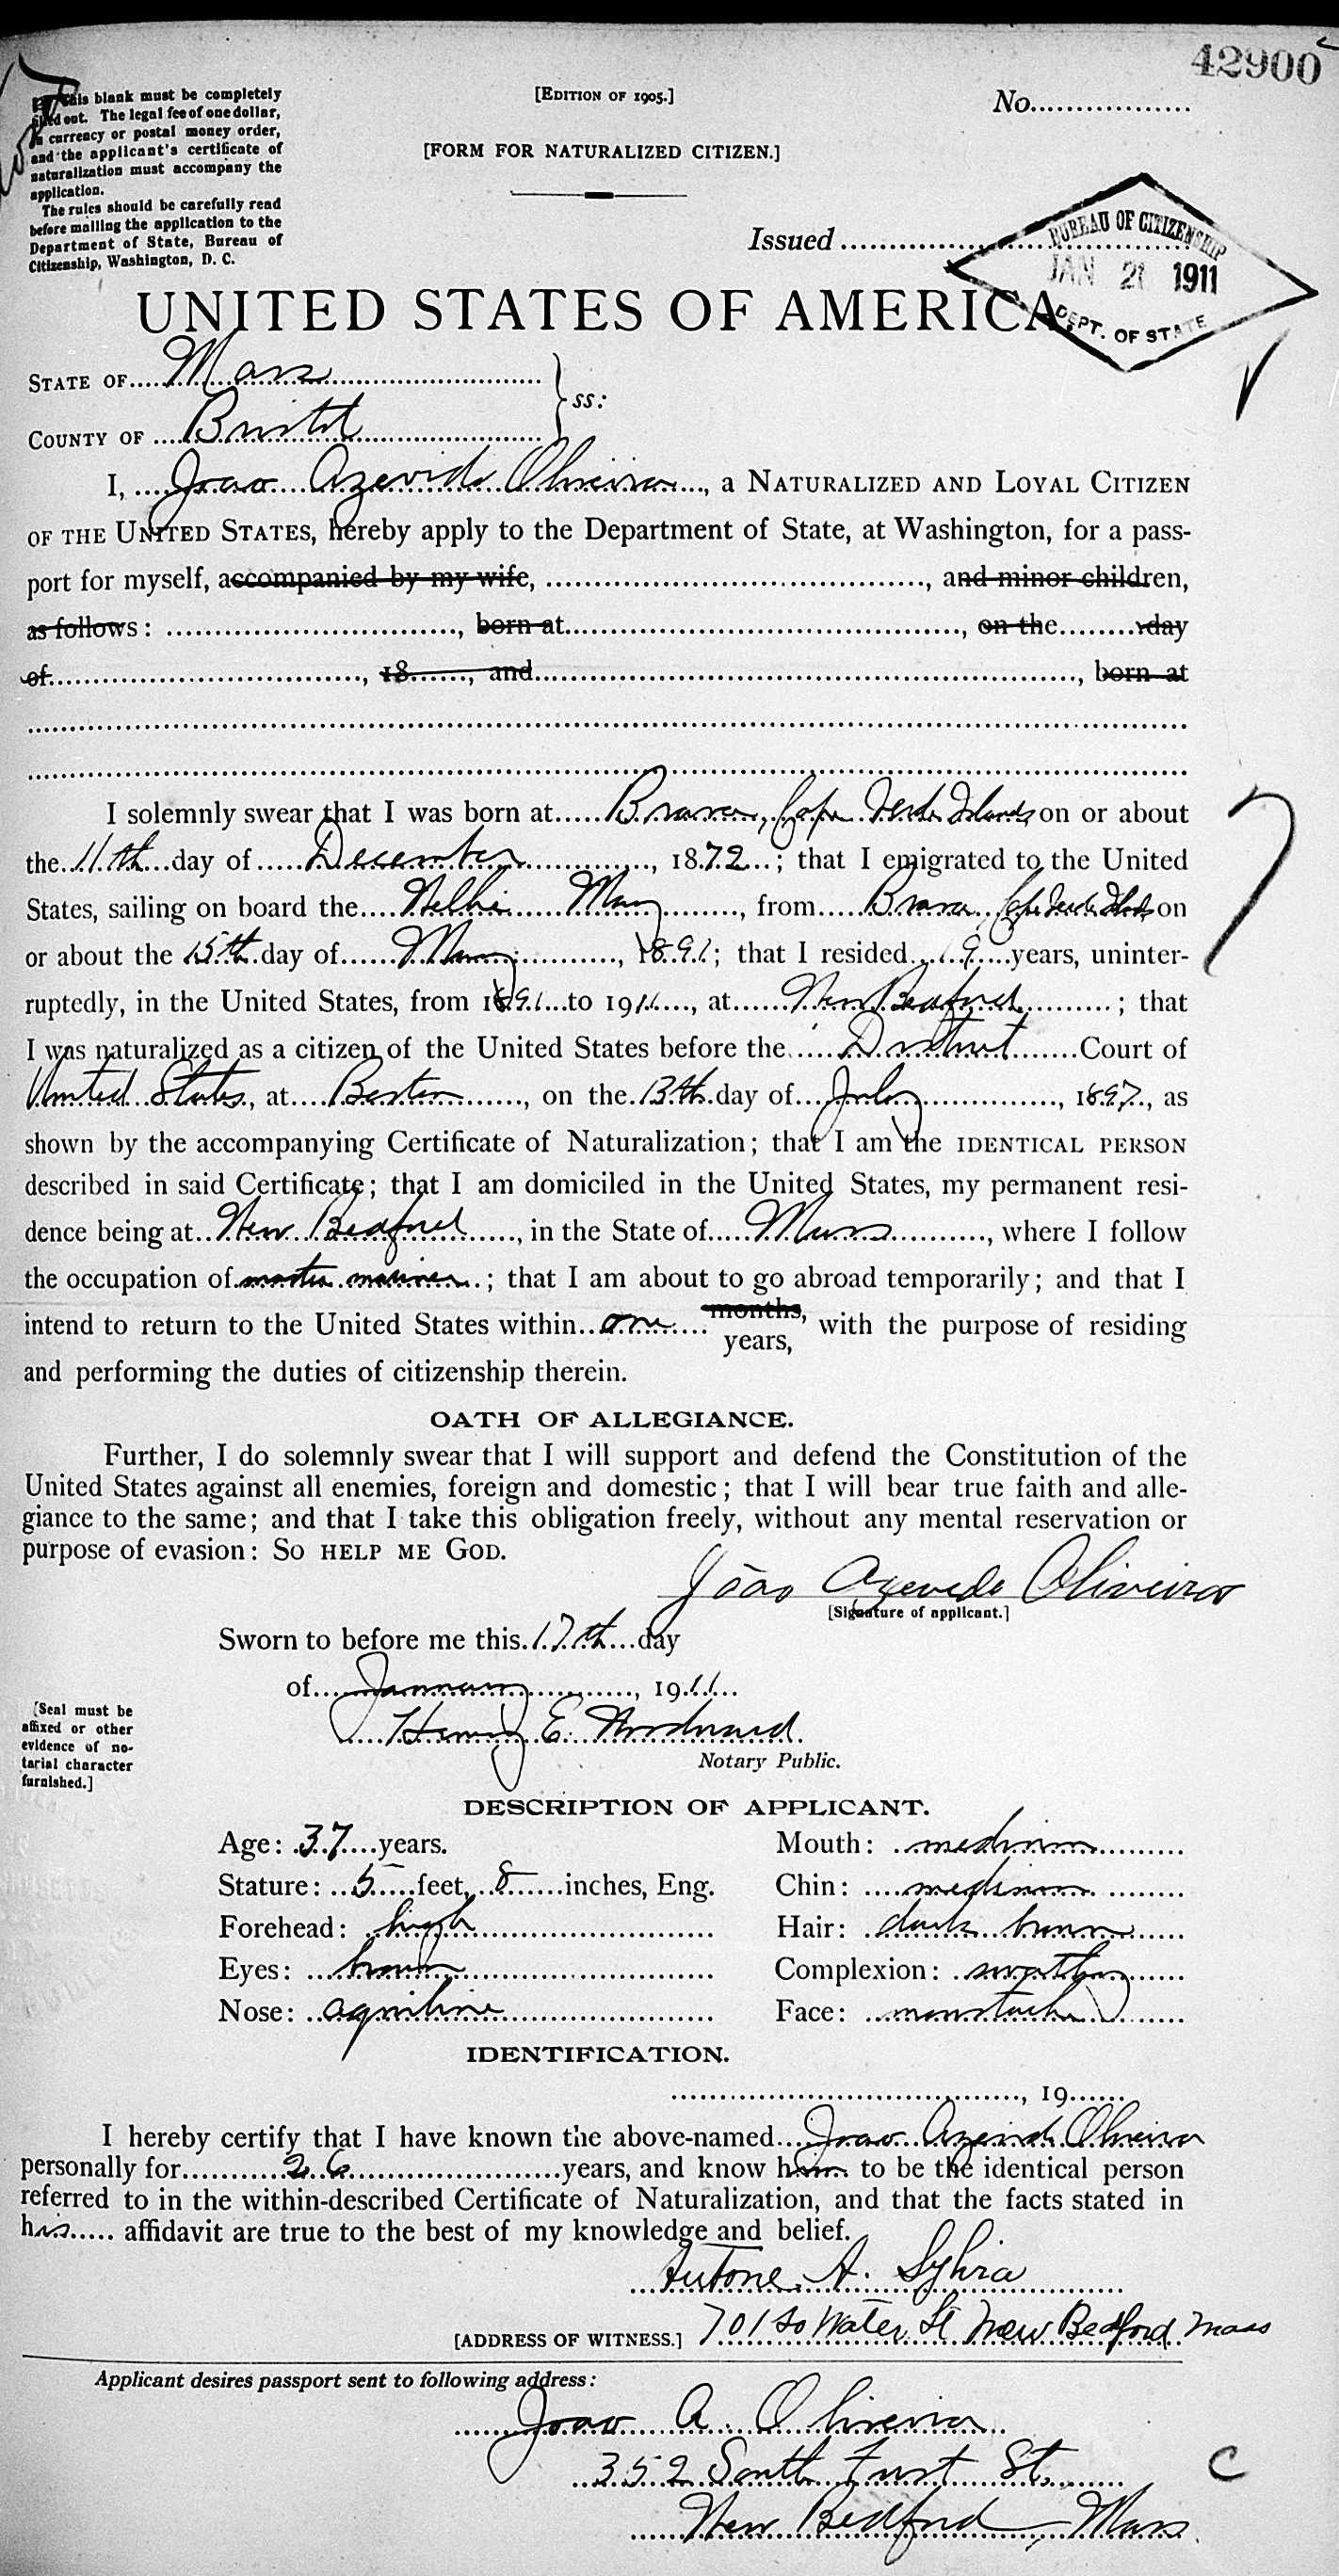 42900
[This blank must be completely
filled out. The legal fee of one dollar,
in currency or postal money order,
and the applicant's certificate of
naturalization must accompany the
application.
The rules should be carefully read
before mailing the application to the
Department of State, Bureau of
Citizenship, Washington, D. C.
[EDITION OF 1905.]
No.
[FORM FOR NATURALIZED CITIZEN.]
Issued
BUREAU OF CITIZENSHIP
JAN 21 1911
DEPT. OF STATE
UNITED STATES OF AMERICA,
STATE OF Mass
COUNTY OF Bristol
ss:
I, Joao Azevido Oliveira, a NATURALIZED AND LOYAL CITIZEN
OF THE UNITED STATES, hereby apply to the Department of State, at Washington, for a pass-
port for myself, accompanied by my wife, , and minor children,
as follows: , born at , on the day
of , 18 , and , born at
I solemnly swear that I was born at Brava, Cape Verde Islands on or about
the 11th day of December, 1872; that I emigrated to the United
States, sailing on board the Nellie May, from Brava, Cape Verde Islands on
or about the 15th day of May, 1891; that I resided 19 years, uninter-
ruptedly, in the United States, from 1891 to 1911, at New Bedford; that
I was naturalized as a citizen of the United States before the District Court of
United States, at Boston, on the 13th day of July, 1897, as
shown by the accompanying Certificate of Naturalization; that I am the IDENTICAL PERSON
described in said Certificate; that I am domiciled in the United States, my permanent resi-
dence being at New Bedford, in the State of Mass, where I follow
the occupation of master mariner; that I am about to go abroad temporarily; and that I
intend to return to the United States within one months, years, with the purpose of residing
and performing the duties of citizenship therein.
OATH OF ALLEGIANCE.
Further, I do solemnly swear that I will support and defend the Constitution of the
United States against all enemies, foreign and domestic; that I will bear true faith and alle-
giance to the same; and that I take this obligation freely, without any mental reservation or
purpose of evasion: SO HELP ME GOD.
João Azevedo Oliveira
[Signature of applicant.]
Sworn to before me this 17th day
of January, 1911
Henry E. Woodward
Notary Public.
[Seal must be
affixed or other
evidence of no-
tarial character
furnished.]
DESCRIPTION OF APPLICANT.
Age: 37 years.
Mouth: medium
Stature: 5 feet, 8 inches, Eng.
Chin: medium
Forehead: high
Hair: dark brown
Eyes: brown
Complexion: swarthy
Nose: aquiline
Face: moustache
IDENTIFICATION.
, 19
I hereby certify that I have known the above-named Joao Azevido Oliveira
personally for 26 years, and know him to be the identical person
referred to in the within-described Certificate of Naturalization, and that the facts stated in
his affidavit are true to the best of my knowledge and belief.
Antone A. Sylvia
[ADDRESS OF WITNESS.] 701 So Water St New Bedford Mass
Applicant desires passport sent to following address:
Joao A. Oliveira
352 South First St.
New Bedford, Mass.
C